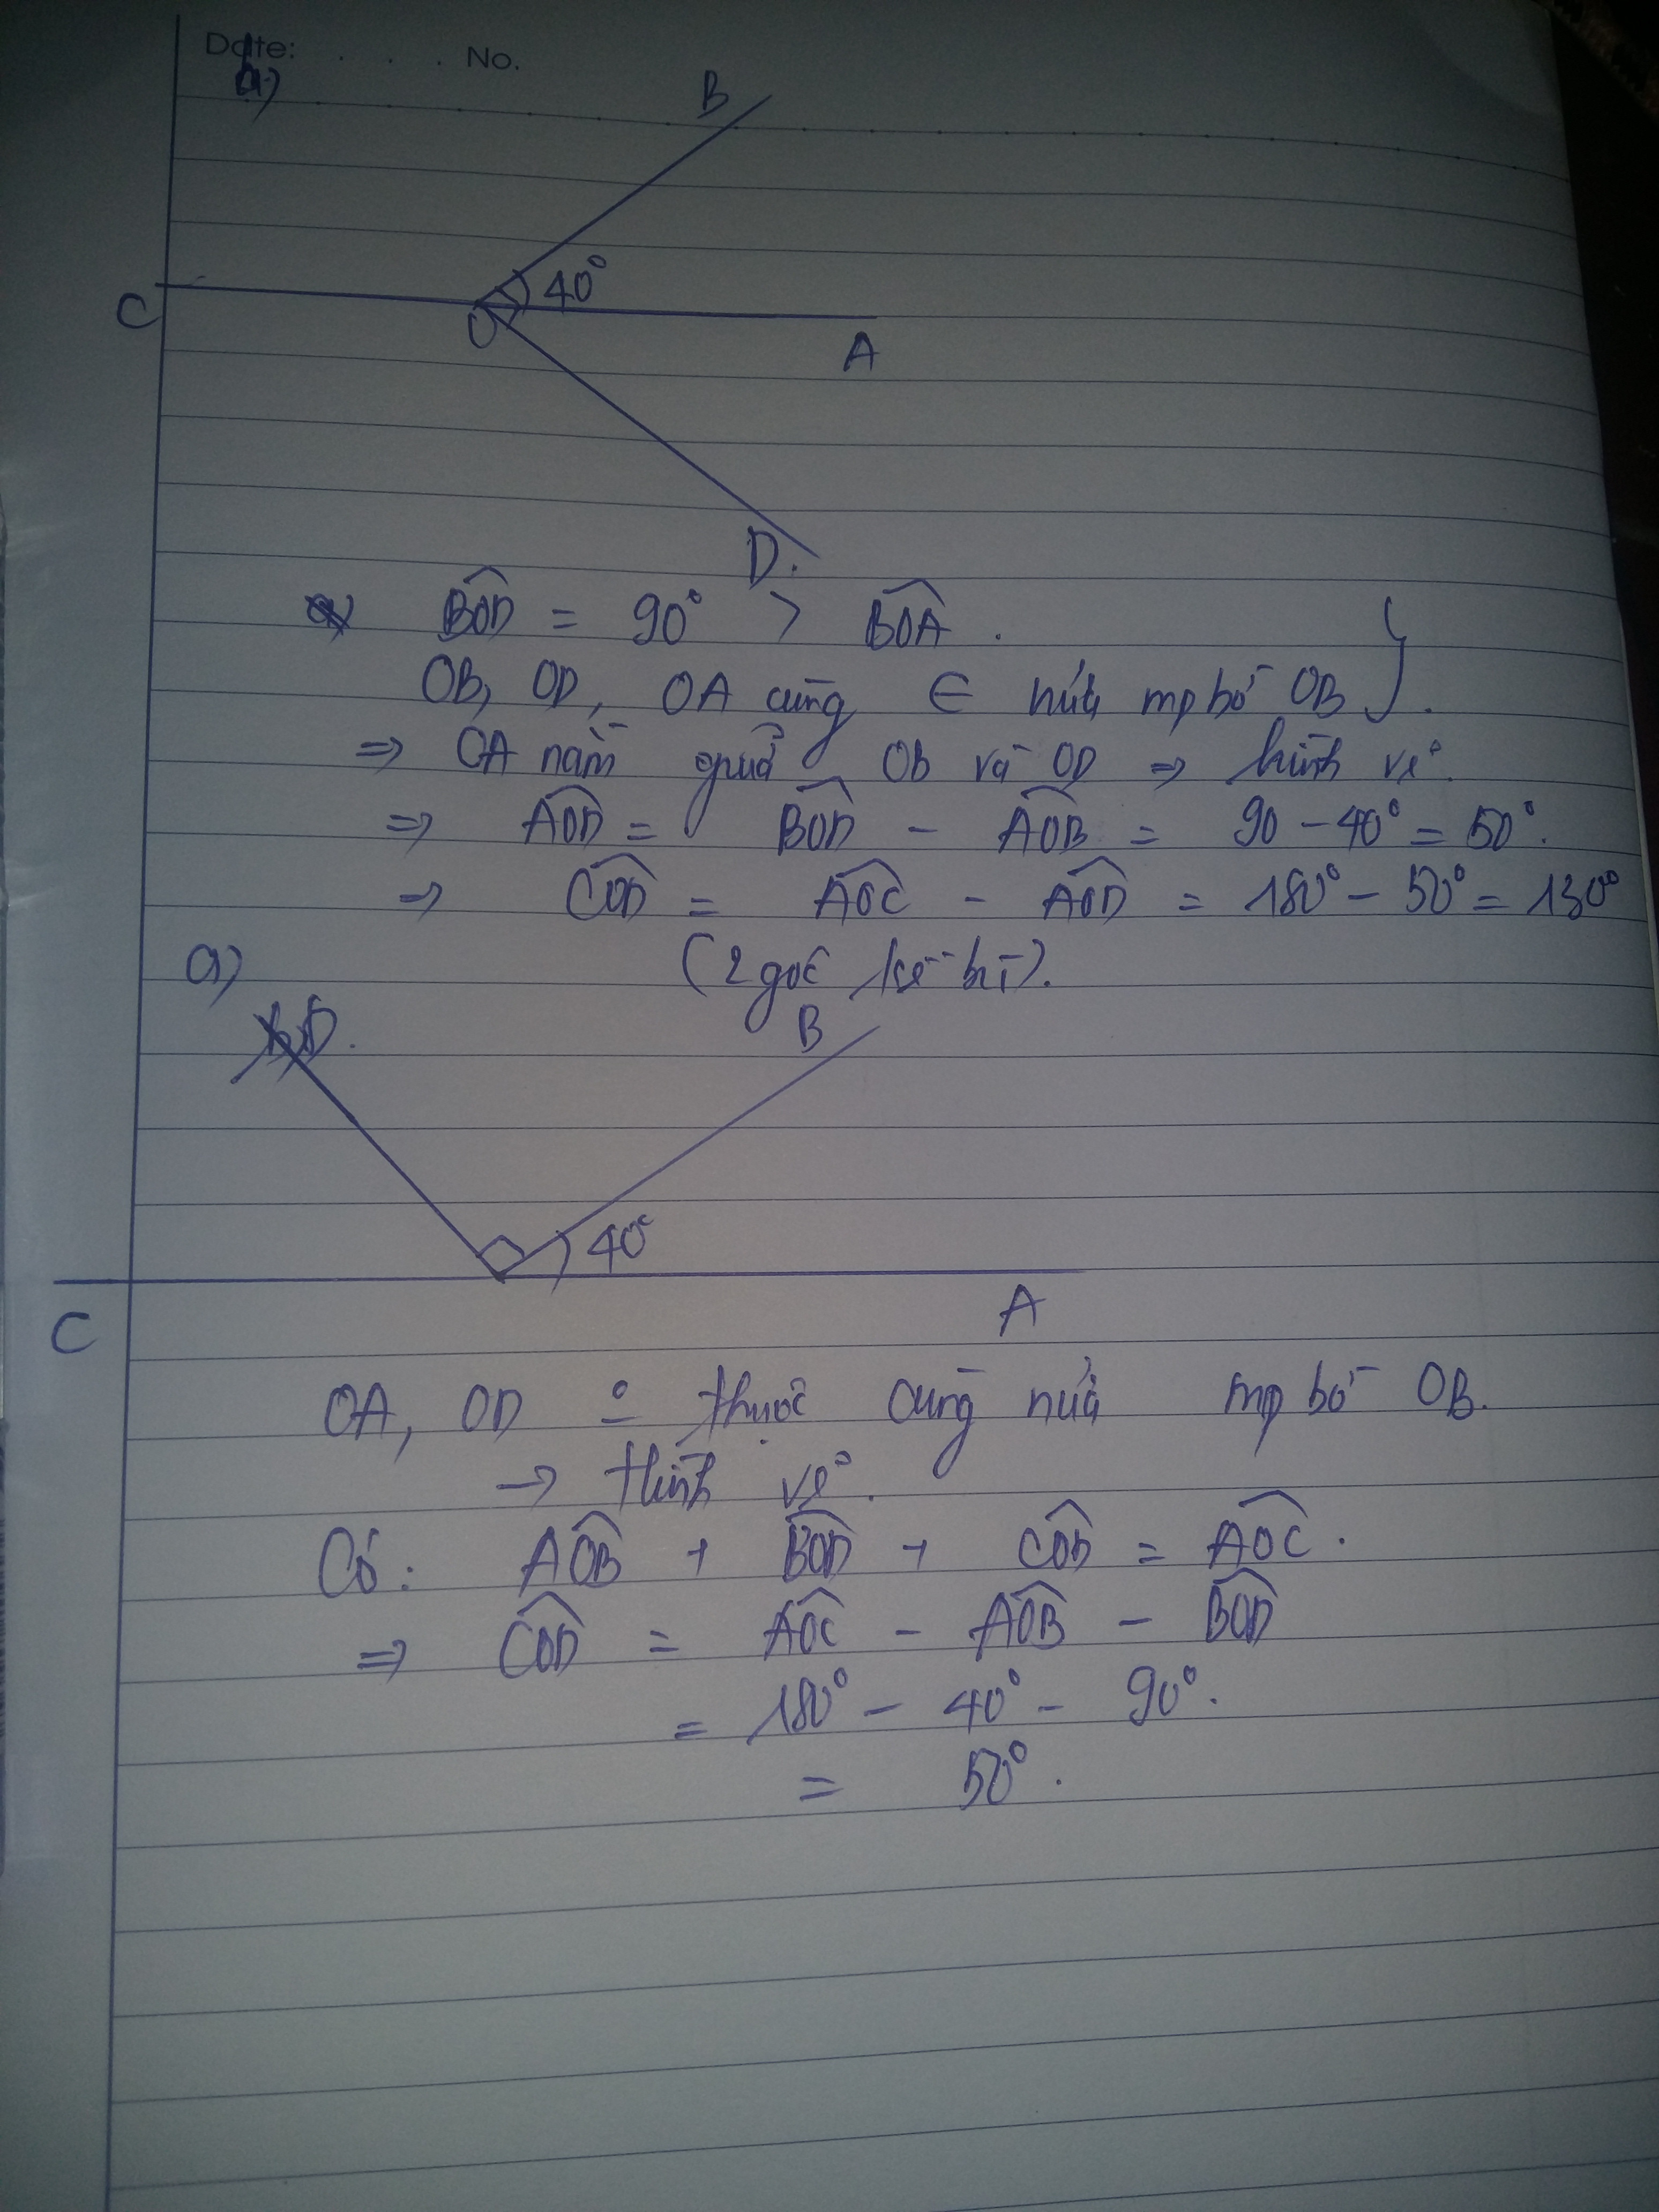 Date: . . . . No.
a)
B
40°
C
O
A
D.
BOD = 90° > BOA .
OB, OD, OA cùng ∈ nửa mp bờ OB } .
=> OA nằm giữa OB và OD => hình vẽ.
=> AOD = BOD - AOB = 90 - 40° = 50°.
=> COD = AOC - AOD = 180° - 50° = 130°
(2 góc kề bù).
a)
D.
B
40°
C
A
OA, OD thuộc cùng nửa mp bờ OB.
-> Hình vẽ.
Có: AOB + BOD + COD = AOC .
=> COD = AOC - AOB - BOD
= 180° - 40° - 90° .
= 50° .